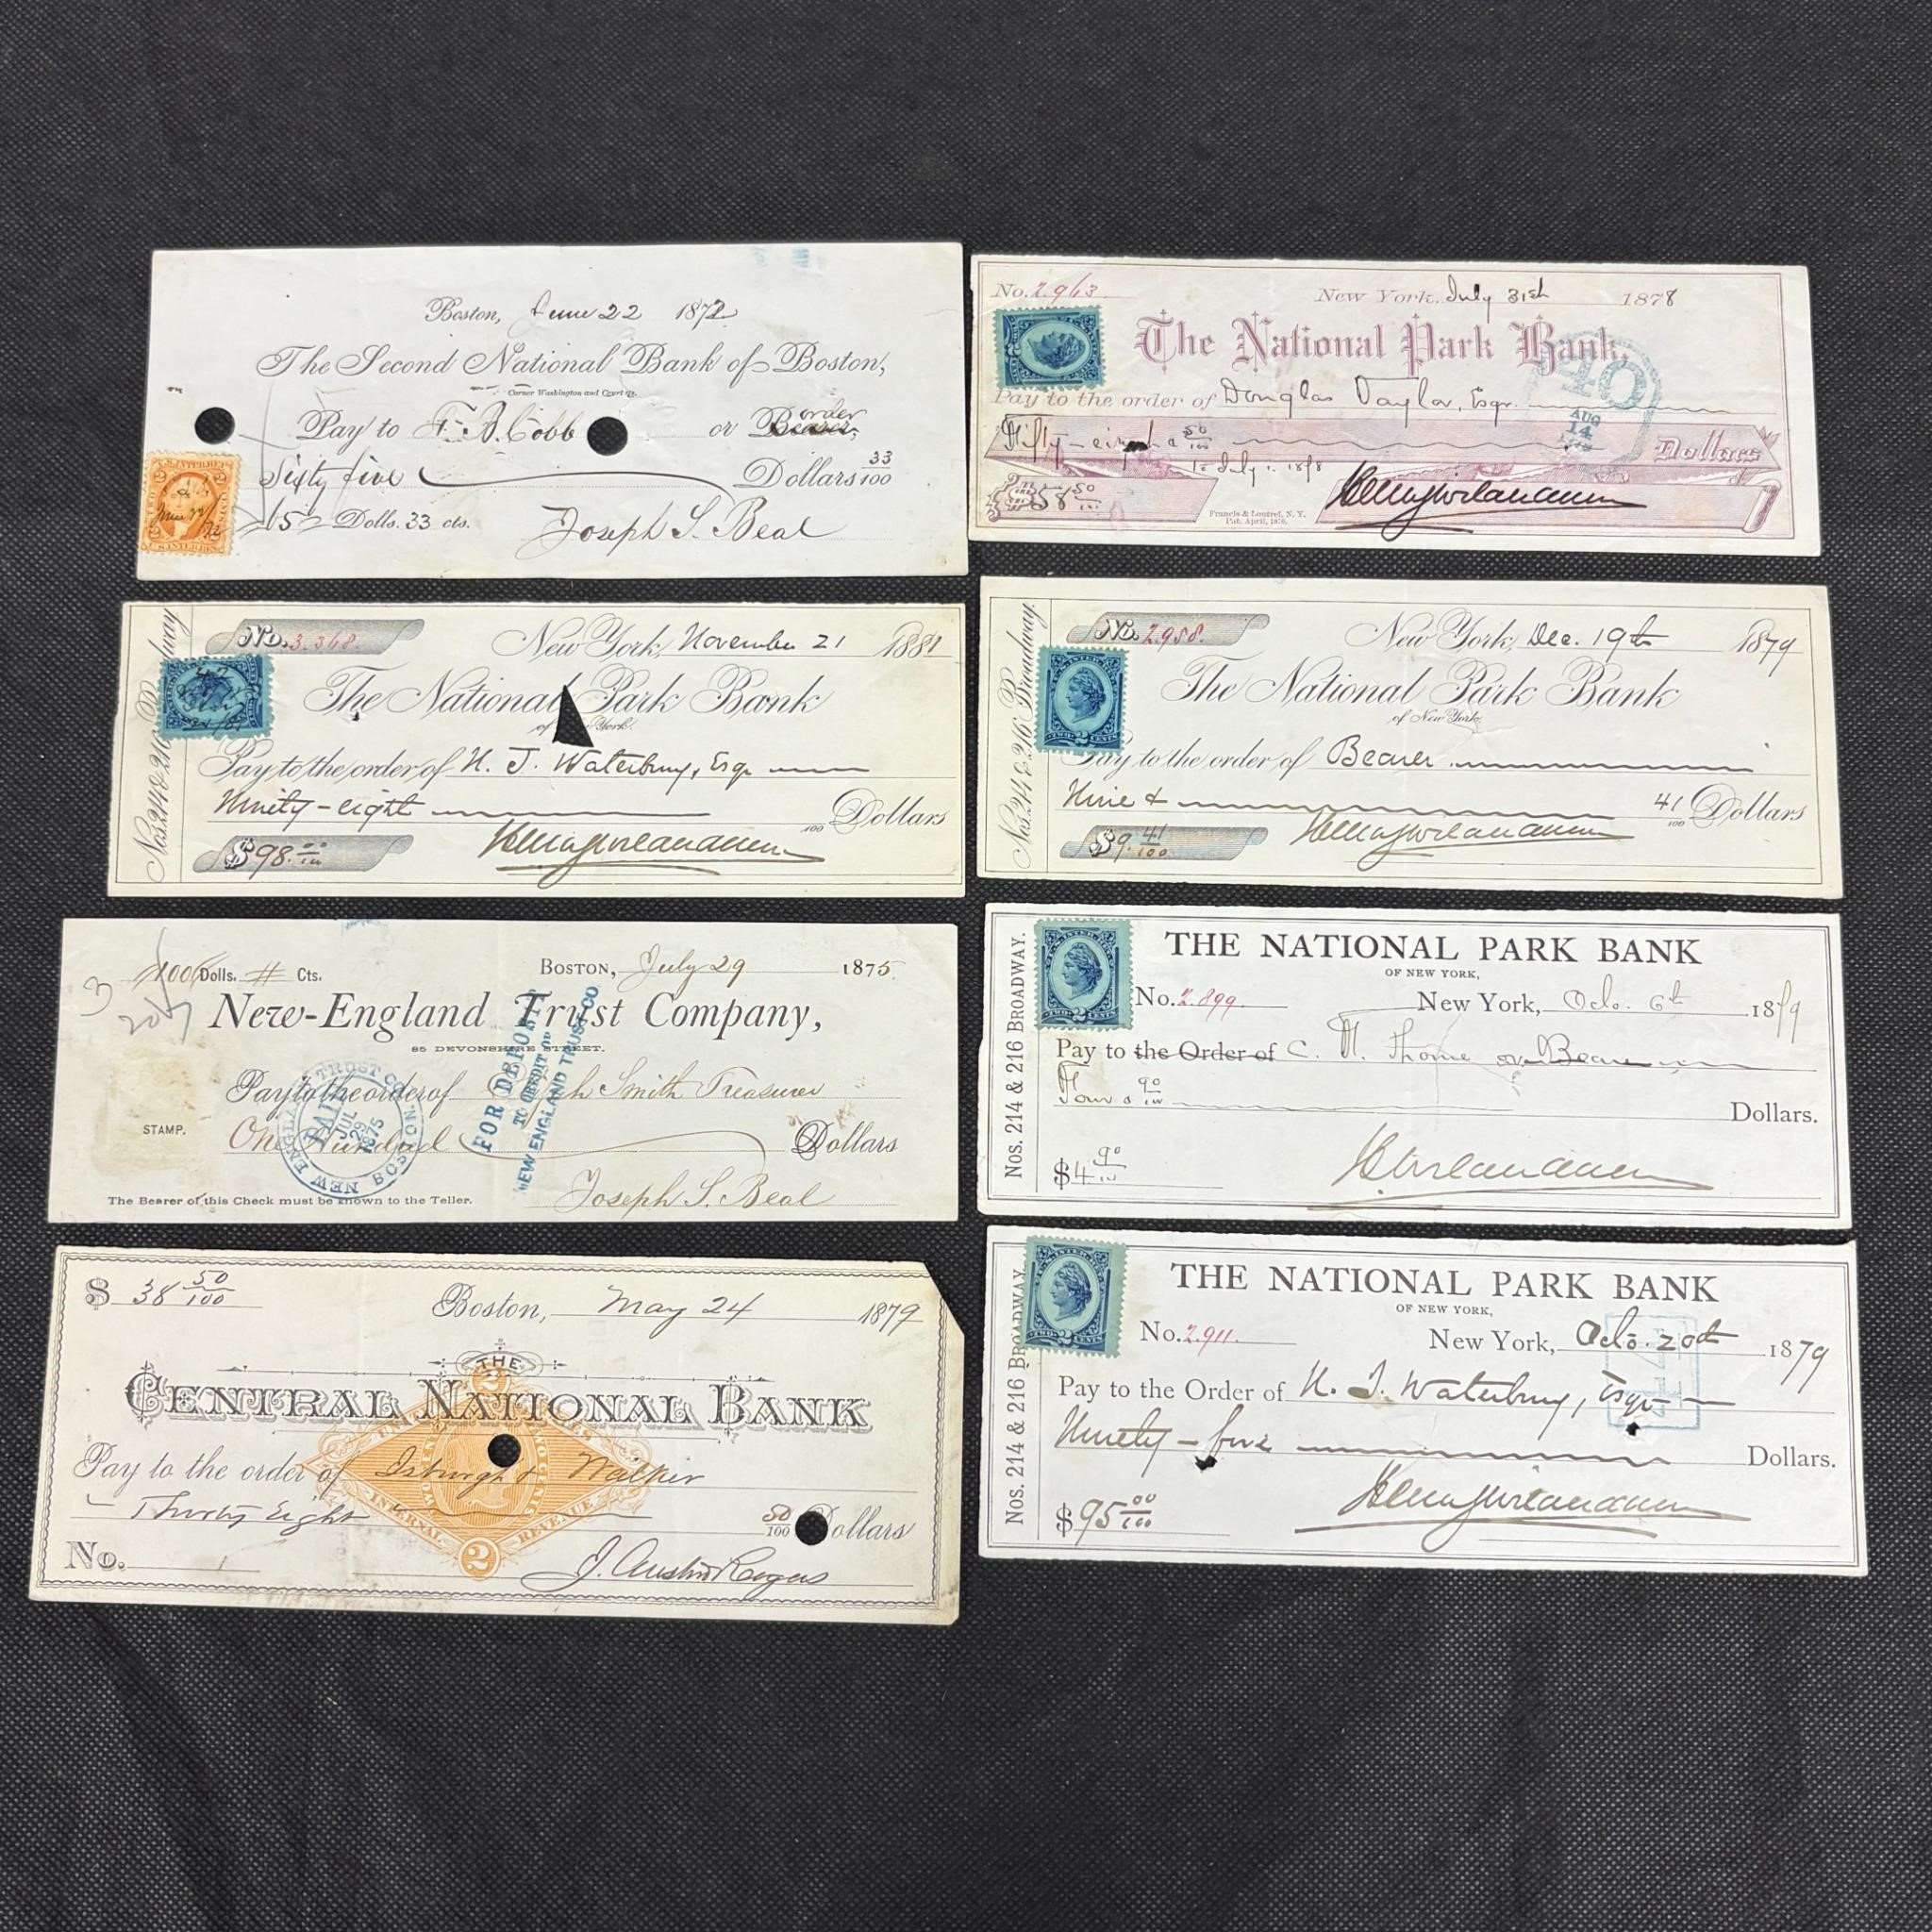 Boston, June 22 1872
The Second National Bank of Boston,
Corner Washington and Court Sts.
Pay to F. B. Cobb or Bearer, order
Sixty five Dollars 33/100
65 Dolls. 33 cts. Joseph S. Beal
U.S. INTER. REV.
No. 2.963 New York, July 31st 1878
The National Park Bank,
Pay to the order of Douglas Taylor, Esqr.
Fifty-eight & 50/100 Dollars
$58 50/100
Francis & Loutrel, N.Y.
Pat. April, 1870.
40
AUG
14
Nos. 214 & 216 Broadway
No. 3.368. New York, November 21 1881
The National Park Bank
of New York.
Pay to the order of N. J. Waterbury, Esqr.
Ninety-eight /100 Dollars
$98.00/100
Nos. 214 & 216 Broadway.
No. 2.958. New York, Dec. 19th 1879
The National Park Bank
of New York
Pay to the order of Bearer
Nine & 41/100 Dollars
$9.41/100
U.S. INTER. REV.
TWO 2 CENTS
3 100 Dolls. # Cts. BOSTON, July 29 1875
New-England Trust Company,
85 DEVONSHIRE STREET.
Pay to the order of Smith Treasurer
One Hundred Dollars
STAMP.
Joseph S. Beal
The Bearer of this Check must be known to the Teller.
NEW ENGLAND TRUST CO BOSTON
PAID
JUL
29
1875
FOR DEPOSIT
TO CREDIT OF
NEW ENGLAND TRUST CO
Nos. 214 & 216 BROADWAY.
THE NATIONAL PARK BANK
OF NEW YORK,
No. 2.899. New York, Oct. 6th 1879
Pay to the Order of C. N. Thorne or Bearer
Four & 90/100 Dollars.
$4 90/100
TWO 2 CENTS
$ 38 50/100 Boston, May 24 1879
THE
CENTRAL NATIONAL BANK
Pay to the order of Isburgh & Walker
Thirty Eight 50/100 Dollars
No. J. Austin Rogers
2
UNITED STATES
INTERNAL REVENUE
TWO CENTS
2
Nos. 214 & 216 BROADWAY.
THE NATIONAL PARK BANK
OF NEW YORK,
No. 2.911. New York, Oct. 20th 1879
Pay to the Order of N. J. Waterbury, Esqr
Ninety-five Dollars.
$95 00/100
TWO 2 CENTS